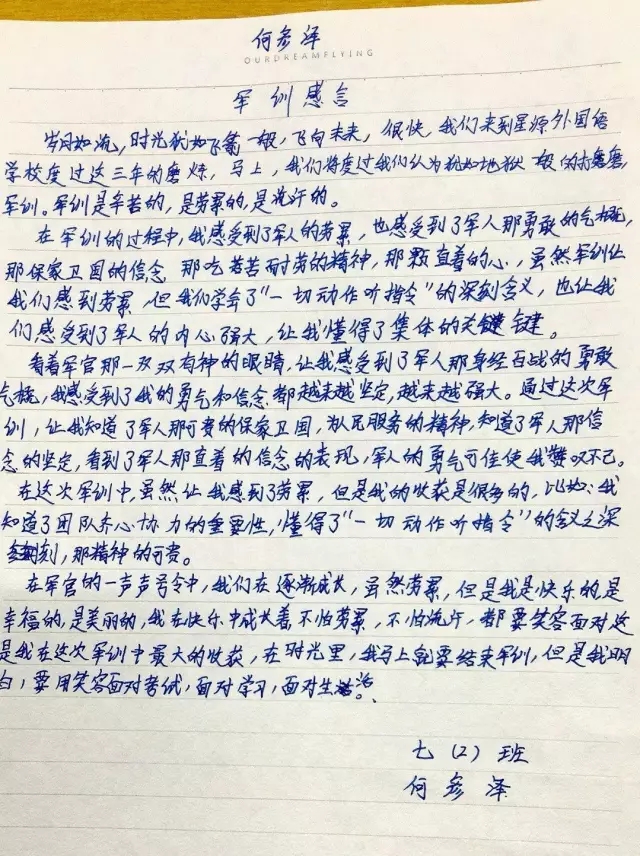 何彦泽
OURDREAMFLYING
军训感言
岁月如流，时光犹如飞箭一般，飞向未来，很快，我们来到星源外国语
学校度过这三年的磨炼，马上，我们将度过我们认为犹如地狱一般的磨,
军训。军训是辛苦的，是劳累的，是流汗的。
在军训的过程中，我感受到了军人的劳累，也感受到了军人那勇敢的气概，
那保家卫国的信念 那吃苦而耐劳的精神，那颗直着的心，虽然军训让
我们感到劳累，但我们学会了“一切动作听指令”的深刻含义，也让我
们感受到了军人的内心强大，让我懂得了集体的关键键。
看着军官那一双双有神的眼睛，让我感受到了军人那身经百战的勇敢
气概，我感受到了我的勇气和信念都越来越坚定，越来越强大。通过这次军
训，让我知道了军人那可贵的保家卫国，为人民服务的精神，知道了军人那信
念的坚定，看到了军人那直着的信念的表现，军人的勇气可佳使我赞叹不已。
在这次军训中，虽然让我感到了劳累，但是我的收获是很多的，比如：我
知道了团队齐心协力的重要性，懂得了“一切动作听指令”的含义之深
刻，那精神的可贵。
在军官的一声声号令中，我们在逐渐成长，虽然劳累，但是我是快乐的，是
幸福的，是美丽的，我在快乐中成长着不怕劳累，不怕流汗，都要笑容面对这
是我在这次军训中最大的收获，在时光里，我马上就要结束军训，但是我明
白，要用笑容面对考试，面对学习，面对生活。
七（2）班
何彦泽